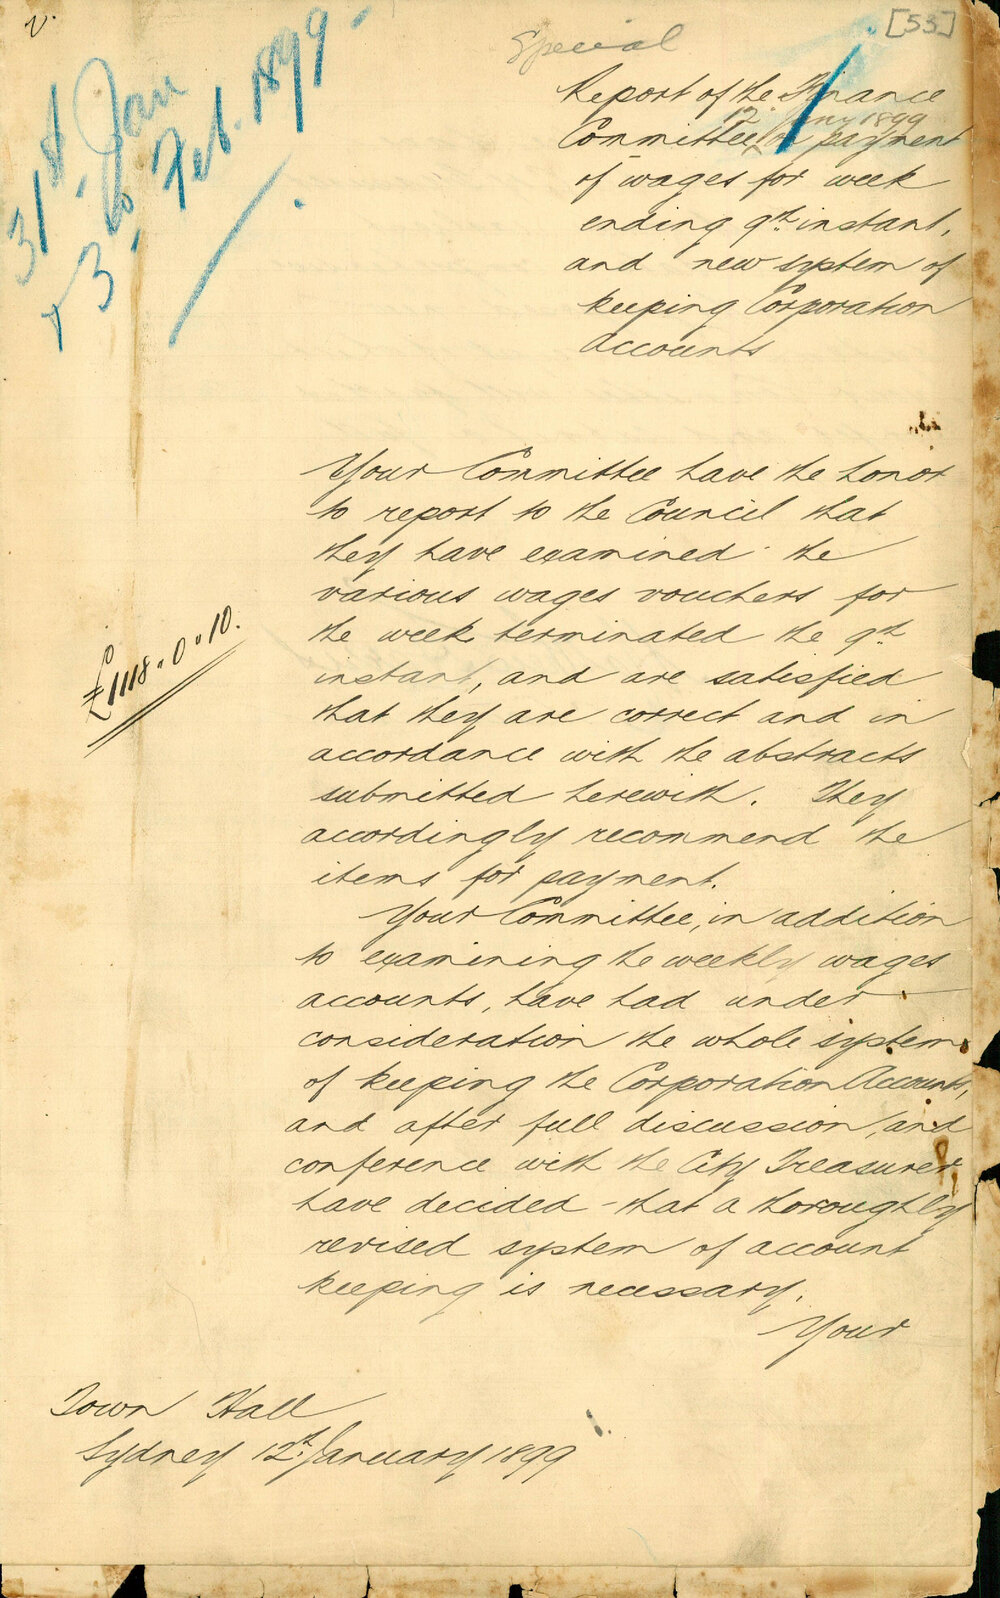 v.
[53]
31st Jan
& 3 Feb. 1899.
Special
Report of the Finance
Committee, 12 Jany 1899 on payment
of wages for week
ending 9th instant,
and new system of
keeping Corporation
accounts
Your Committee have the honor
to report to the Council that
they have examined the
various wages vouchers for
the week terminated the 9th
instant, and are satisfied
that they are correct and in
accordance with the abstracts
submitted herewith. They
accordingly recommend the
items for payment.
£1118"0"10.
Your Committee, in addition
to examining the weekly wages
accounts, have had under
consideration the whole system
of keeping the Corporation Accounts,
and after full discussion, and
conference with the City Treasurer
have decided that a thoroughly
revised system of account
keeping is necessary.
Your
Town Hall
Sydney 12th January 1899